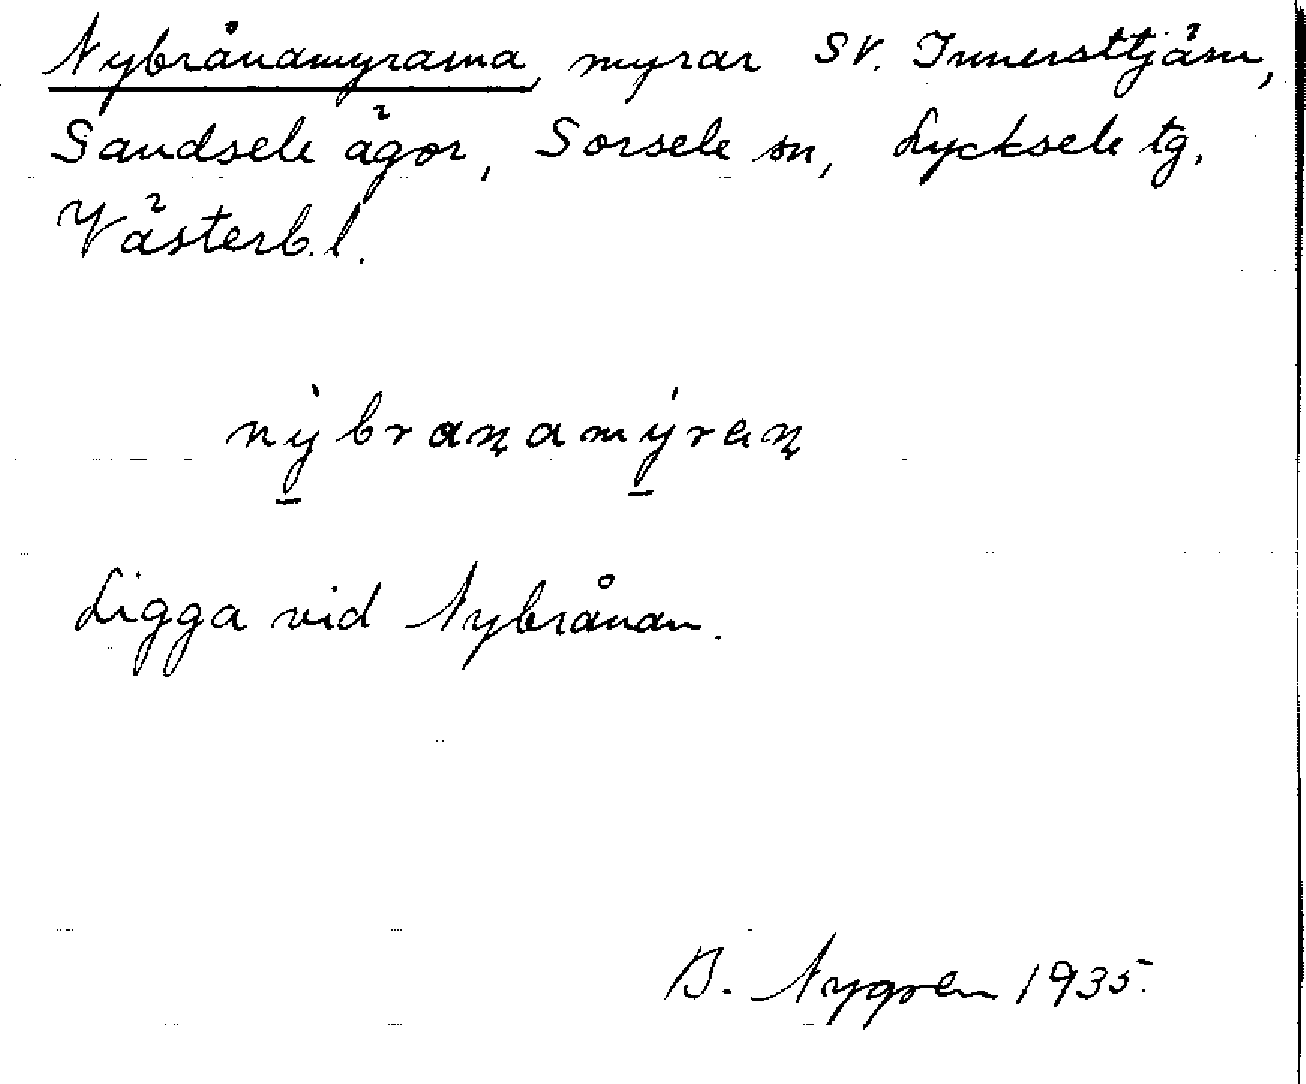 Nybrånamyrarna, myrar SV. Innersttjärn,
Sandsele ägor, Sorsele sn, Lycksele tg,
Västerb.l.
nỳbranamýren
Ligga vid Nybrånan.
B. Nygren 1935.